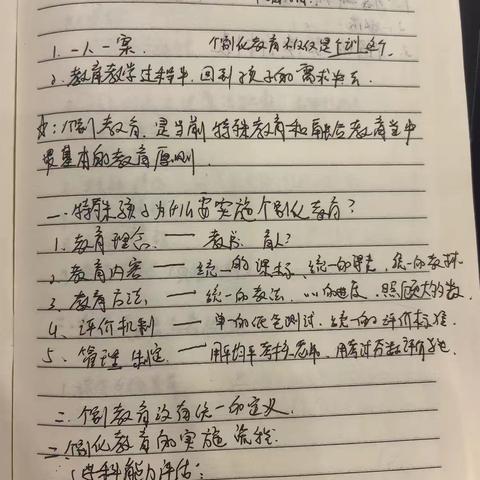 1. 一人一案. 个别化教育不仅仅是个训这个.
2. 教育教学过程中, 回到孩子的需求中去.
: 个别教育, 是当前特殊教育和融合教育当中
最基本的教育原则.
一. 特殊孩子为什么要实施个别化教育?
1. 教育理念 —— 教书 育人?
2. 教育内容 —— 统一的课标, 统一的课表, 统一的教材.
3. 教育方法 —— 统一的教法, 的进度, 照顾大多数.
4、评价机制 —— 单一的 测试. 统一的评价标准.
5、管理制度 —— 用平均率考核老师, 用考试分数评价学生.
二. 个别教育没有统一的定义.
三. 个别化教育的实施流程.
1. 学科能力评估: